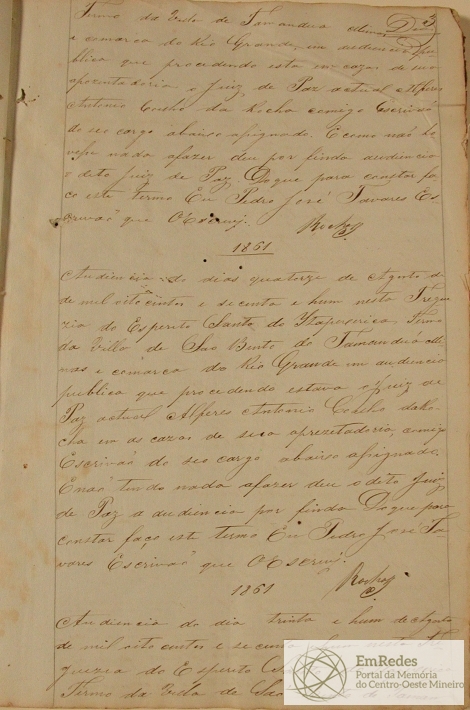 3
Termo da Villa de Tamandua Minas
e comarca do Rio Grande em audiencia pu
blica que procedendo esta em cazas de sua
apozentadoria o Juiz de Paz actual Alferes
Antonio Coelho da Rocha comigo Escrivaõ
do seo cargo abaixo asignado. E como naõ ho
vese nada afazer deu por finda audiencia
o deto Juiz de Paz Doque para constar fa
ço este termo Eu Pedro José Tavares Es
crivaõ que OEscrevj.
Rocha
1861
Audiencia do dias quatorze de Agosto d
de mil oito centos e secenta e hum nesta Fregue
zia do Espereto Santo do Itapecerica, Termo
da Villa de Sao Bento do Tamandua Mi
nas e comarca do Rio Grande em audiencia
publica que procedendo estava o Juiz de
Paz actual Alferes Antonio Coelho daRo
cha em as cazas de sua aprezetadoria, comigo
Escrivaõ do seo cargo abaixo asignado.
Enaõ tendo nada afazer deu o deto Juiz
de Paz a audiencia por finda Doque para
constar faço este termo Eu Pedro José Ta
vares Escrivaõ que OEscrevj.
Rocha
1861
Audiencia do dia trinta e hum de Agosto
de mil oito centos e secenta e hum nesta Fre
guezia do Espereto
Termo da Villa de Sao
EmRedes
Portal da Memória
do Centro-Oeste Mineiro